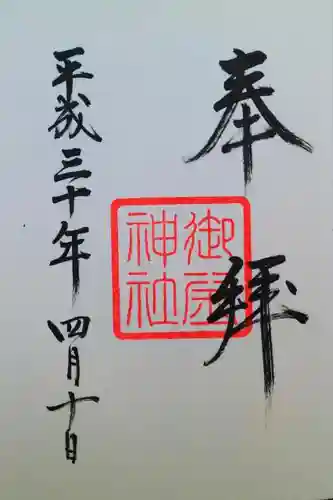 奉拝
御
神社
平成三十年四月十日